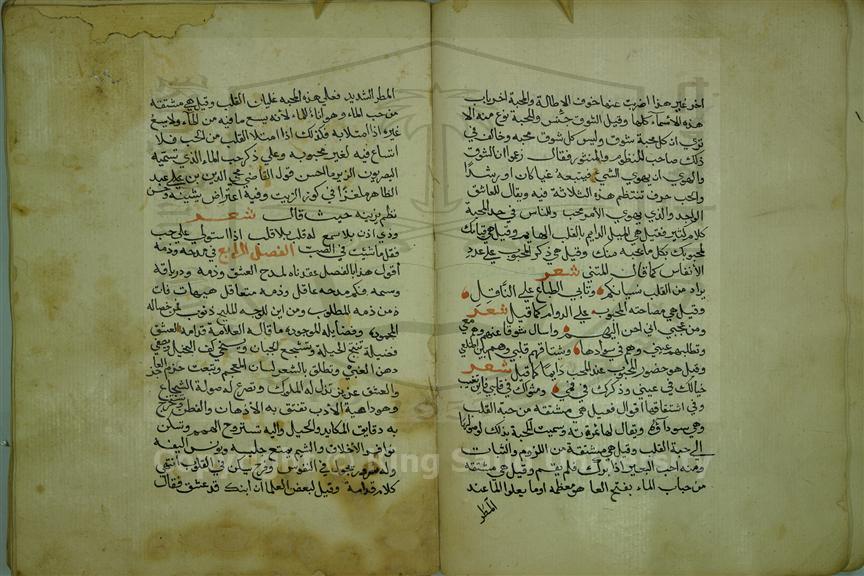 اخر غير هذا اضربت عنها خوف الاطالة والمحبة اخر باب
هذه الاسماء كلها وقيل الشوق جنس والمحبة نوع منه الا
ترى ان كل محبة شوق وليس كل شوق محبه وخالف في
ذلك صاحب المنظوم والمنثور فقال زعموا ان الشوق
والهوى ان يهوى الشي فيتبعه غيا كان او رشدا
والحب حرف تنتظم هذه الثلاثة فيه ويقال للعاشق
الواجد والذي يهوى الامر محب وللناس في حد المحبة
كلام كثير فقيل هي الميل الدايم بالقلب الهايم وقيل هي قيامك
لمحبوبك بكل ما يحبه منك وقيل هي ذكر المحبوب على عدد
الانفاس كما قال المتنبي شعر
يراد من القلب نسيانكم وتابى الطباع على الناقل
وقيل هي مصاحبة المحبوب على الدوام كما قيل شعر
ومن عجبي اني احن اليهم واسال شوقا عنهم وهم معي
وتطلبهم عيني وهم في سوادها ويشتاقهم قلبي وهم بين اضلعي
وقيل هو حضور المحبوب عند المحب دايما كما قيل شعر
خيالك في عيني وذكرك في فمي ومثواك في قلبي فاين تغيب
وفي اشتقاقها اقوال فقيل هي مشتقة من حبة القلب
وهي سويداوه ويقال لها ثمرة وسميت المحبة بذلك لوصولها
الى حبة القلب وقيل هي مشتقة من اللزوم والثبات
ومنه احب البعير اذا برك فلم يقم وقيل هي مشتقة
من حباب الماء بفتح الحا هو معظمه او ما يعلو الما عند
المطر
المطر الشديد فعلى هذه المحبه غليان القلب وقيل هي مشتقة
من حب الماء وهو اناء للماء لانه يسع ما فيه من الماء ولا يسع
غيره اذا امتلا به فكذلك اذا امتلا القلب من الحب فلا
اتساع فيه لغير محبوبه وعلى ذكر حب الماء الذي تسميه
البصريون الزير ما احسن قول القاضي محي الدين بن عبد
الظاهر ملغزا في كوز الزيت وفيه اعتراض يشينه وحسن
نظم يزينه حيث قال شعر
وذي اذن بلا سمع له قلب بلا قلب اذا استولى على حب
فقل ما شئت في الصب الفصل الرابع في مدحه وذمه
اقول هذا الفصل عقدناه لمدح العشق وذمه ودرياقه
وسمه فكم مدحه عاقل وذمه متعاقل هيهات فات
من ذمه المطلوب ومن اين للوجه المليح ذنوب فمن خصاله
المحمودة وفضايله الموجوده ما قاله العلامة قدامه العشق
فضيلة تنتج الحيلة وتشجع الجبان وتسخي كف البخيل وتصفي
ذهن الغبي وتطلق بالشعر لسان المعجم وتبعث حزم العاجز
والعشق عزيز تذل له الملوك وتصرع له صولة الشجاع
وهو داهية الادب تفتق به الاذهان والفطن وتستخرج
به دقايق المكايد والحيل واليه تستروح الهمم وتسكن
نوافر الاخلاق والشيم يمتع جليسه ويونس اليفه
وله سرور يجول في النفوس وفرح يسكن في القلوب انتهى
كلام قدامة وقيل لبعض العلما ان ابنك قد عشق فقال